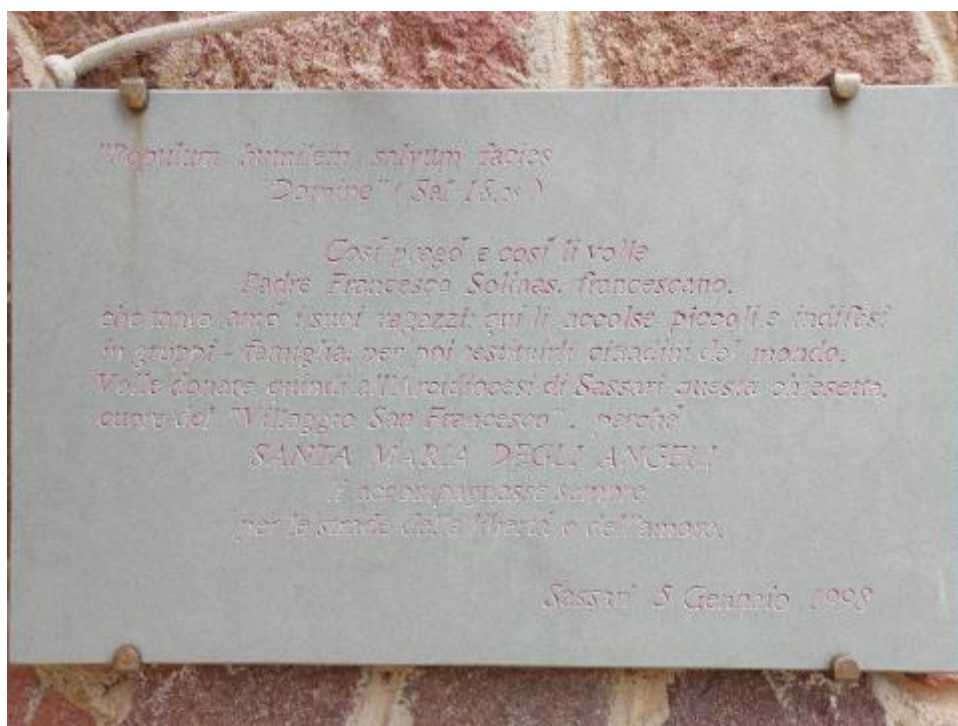 "Populum humilem salvum facies
Domine" (Sal 18,28)
Così pregò e così li volle
Padre Francesco Solinas, francescano,
che tanto amò i suoi ragazzi: qui li accolse piccoli e indifesi
in gruppi - famiglia, per poi restituirli cittadini del mondo.
Volle donare quindi all'Arcidiocesi di Sassari questa chiesetta,
cuore del "Villaggio San Francesco", perché
SANTA MARIA DEGLI ANGELI
li accompagnasse sempre
per le strade della libertà e dell'amore.
Sassari 5 Gennaio 1998